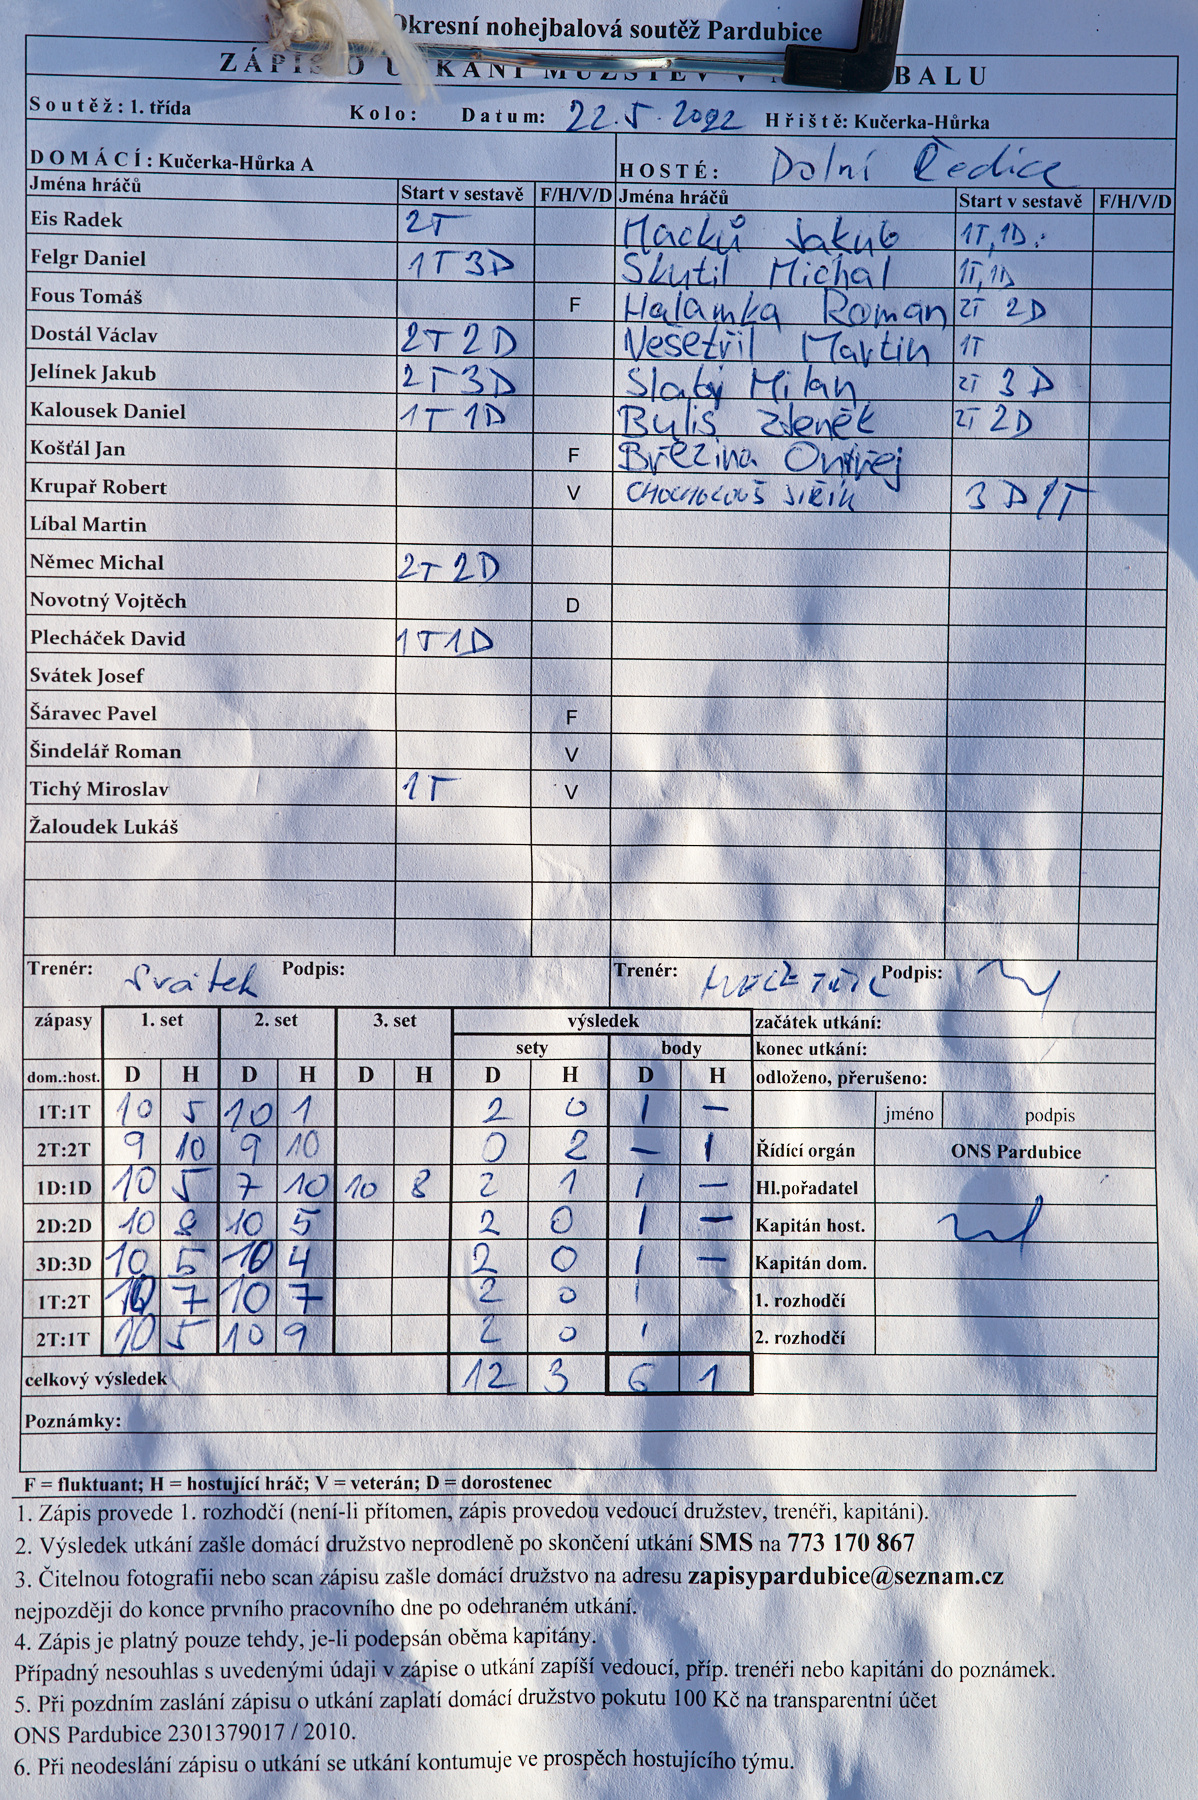 Okresní nohejbalová soutěž Pardubice
ZÁPIS O UTKÁNÍ MUŽSTEV V BALU
Soutěž: 1. třída Kolo: Datum: 22.5.2022 Hřiště: Kučerka-Hůrka
DOMÁCÍ: Kučerka-Hůrka A HOSTÉ: Dolní Ředice
Jména hráčů Start v sestavě F/H/V/D Jména hráčů Start v sestavě F/H/V/D
Eis Radek 2T Macků Jakub 1T, 1D
Felgr Daniel 1T 3D Skutil Michal 1T, 1D
Fous Tomáš F Halamka Roman 2T 2D
Dostál Václav 2T 2D Nešetřil Martin 1T
Jelínek Jakub 2T 3D Slabý Milan 2T 3D
Kalousek Daniel 1T 1D Bylis Zdeněk 2T 2D
Košťál Jan F Březina Ondřej
Krupař Robert V CHOCHOLOUŠ JIŘÍK 3D 1T
Líbal Martin
Němec Michal 2T 2D
Novotný Vojtěch D
Plecháček David 1T 1D
Svátek Josef
Šáravec Pavel F
Šindelář Roman V
Tichý Miroslav 1T V
Žaloudek Lukáš
Trenér: Svátek Podpis: Trenér: Podpis:
zápasy 1. set 2. set 3. set výsledek začátek utkání:
sety body konec utkání:
dom.:host. D H D H D H D H D H odloženo, přerušeno:
1T:1T 10 5 10 1 2 0 1 – jméno podpis
2T:2T 9 10 9 10 0 2 – 1 Řídící orgán ONS Pardubice
1D:1D 10 5 7 10 10 8 2 1 1 – Hl.pořadatel
2D:2D 10 8 10 5 2 0 1 – Kapitán host.
3D:3D 10 5 10 4 2 0 1 – Kapitán dom.
1T:2T 10 7 10 7 2 0 1 1. rozhodčí
2T:1T 10 5 10 9 2 0 1 2. rozhodčí
celkový výsledek 12 3 6 1
Poznámky:
F = fluktuant; H = hostující hráč; V = veterán; D = dorostenec
1. Zápis provede 1. rozhodčí (není-li přítomen, zápis provedou vedoucí družstev, trenéři, kapitáni).
2. Výsledek utkání zašle domácí družstvo neprodleně po skončení utkání SMS na 773 170 867
3. Čitelnou fotografii nebo scan zápisu zašle domácí družstvo na adresu zapisypardubice@seznam.cz
nejpozději do konce prvního pracovního dne po odehraném utkání.
4. Zápis je platný pouze tehdy, je-li podepsán oběma kapitány.
Případný nesouhlas s uvedenými údaji v zápise o utkání zapíší vedoucí, příp. trenéři nebo kapitáni do poznámek.
5. Při pozdním zaslání zápisu o utkání zaplatí domácí družstvo pokutu 100 Kč na transparentní účet
ONS Pardubice 2301379017 / 2010.
6. Při neodeslání zápisu o utkání se utkání kontumuje ve prospěch hostujícího týmu.